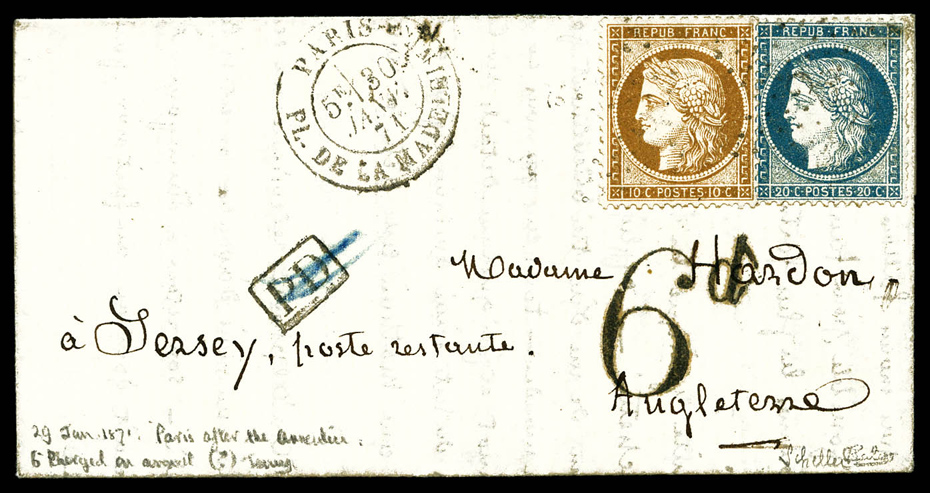 PARIS
PL. DE LA MADELEINE
5E 30
JANV.
71
REPUB · FRANC
10 C · POSTES · 10 C
REPUB · FRANC
20 · C · POSTES · 20 · C
PD
Madame Hardon,
6d
à Jersey, poste restante.
Angleterre
29 Jan. 1871. Paris after the
6 charged on (?)